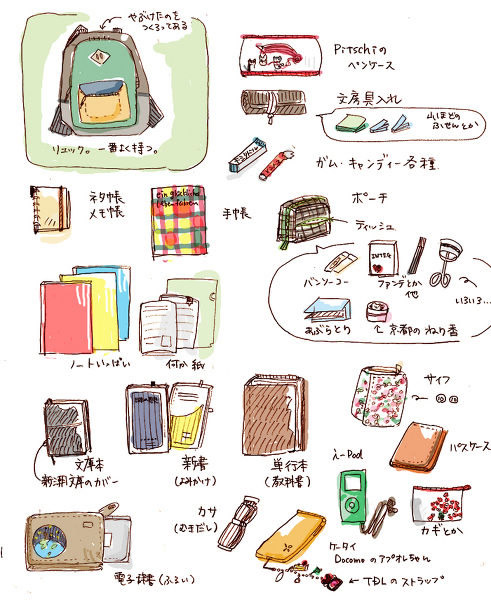 やぶけたのを
つくろってある
リュック。一番よく持つ。
Pitschiの
ペンケース
文房具入れ
山ほどの
ふせんとか
ガム・キャンディー各種
ネタ帳
メモ帳
ein glückliches
手帳
ポーチ
ティッシュ
バンソーコー
ファンデとか
他
いろいろ…
あぶらとり
京都のねり香
ノートいっぱい
何か紙
文庫本
新潮文庫のカバー
新書
(よみかけ)
単行本
(教科書)
サイフ
パスケース
i-Pod
カギとか
カサ
(むきだし)
ケータイ
Docomoのアプオレちゃん
TDLのストラップ
電子辞書(ふるい)